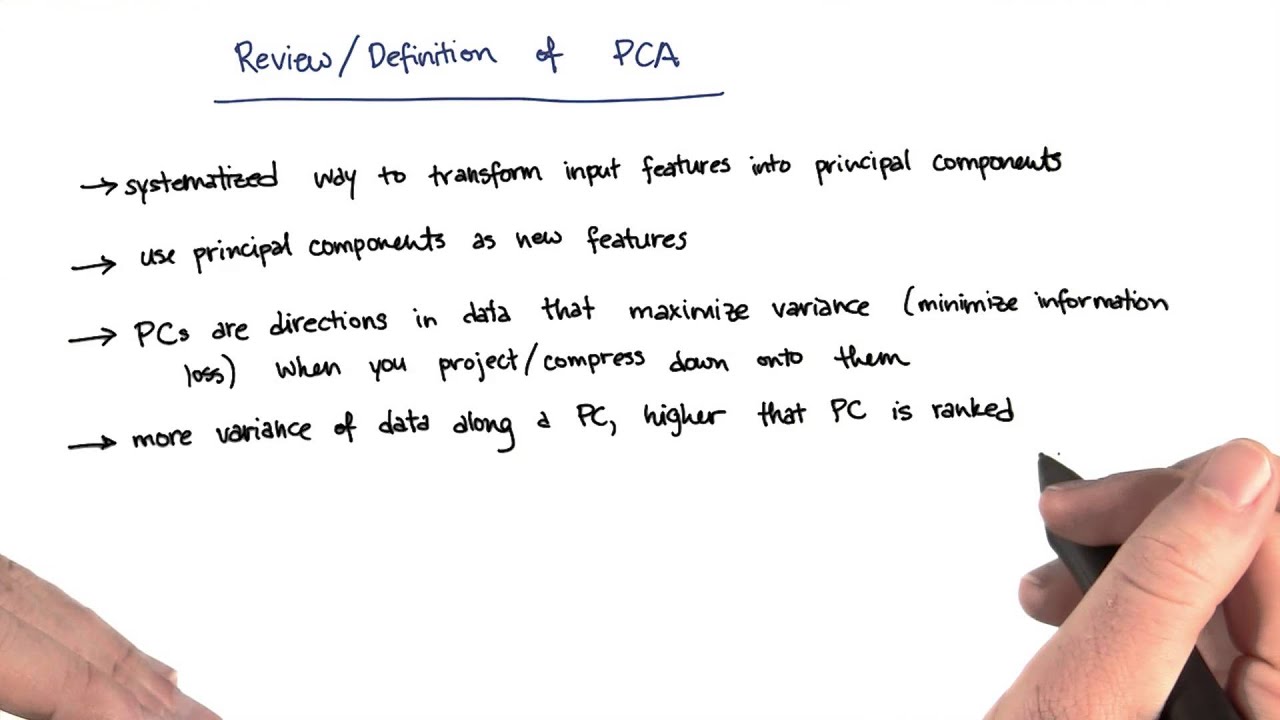 Review/Definition of PCA
→ systematized way to transform input features into principal components
→ use principal components as new features
→ PCs are directions in data that maximize variance (minimize information
loss) when you project/compress down onto them
→ more variance of data along a PC, higher that PC is ranked